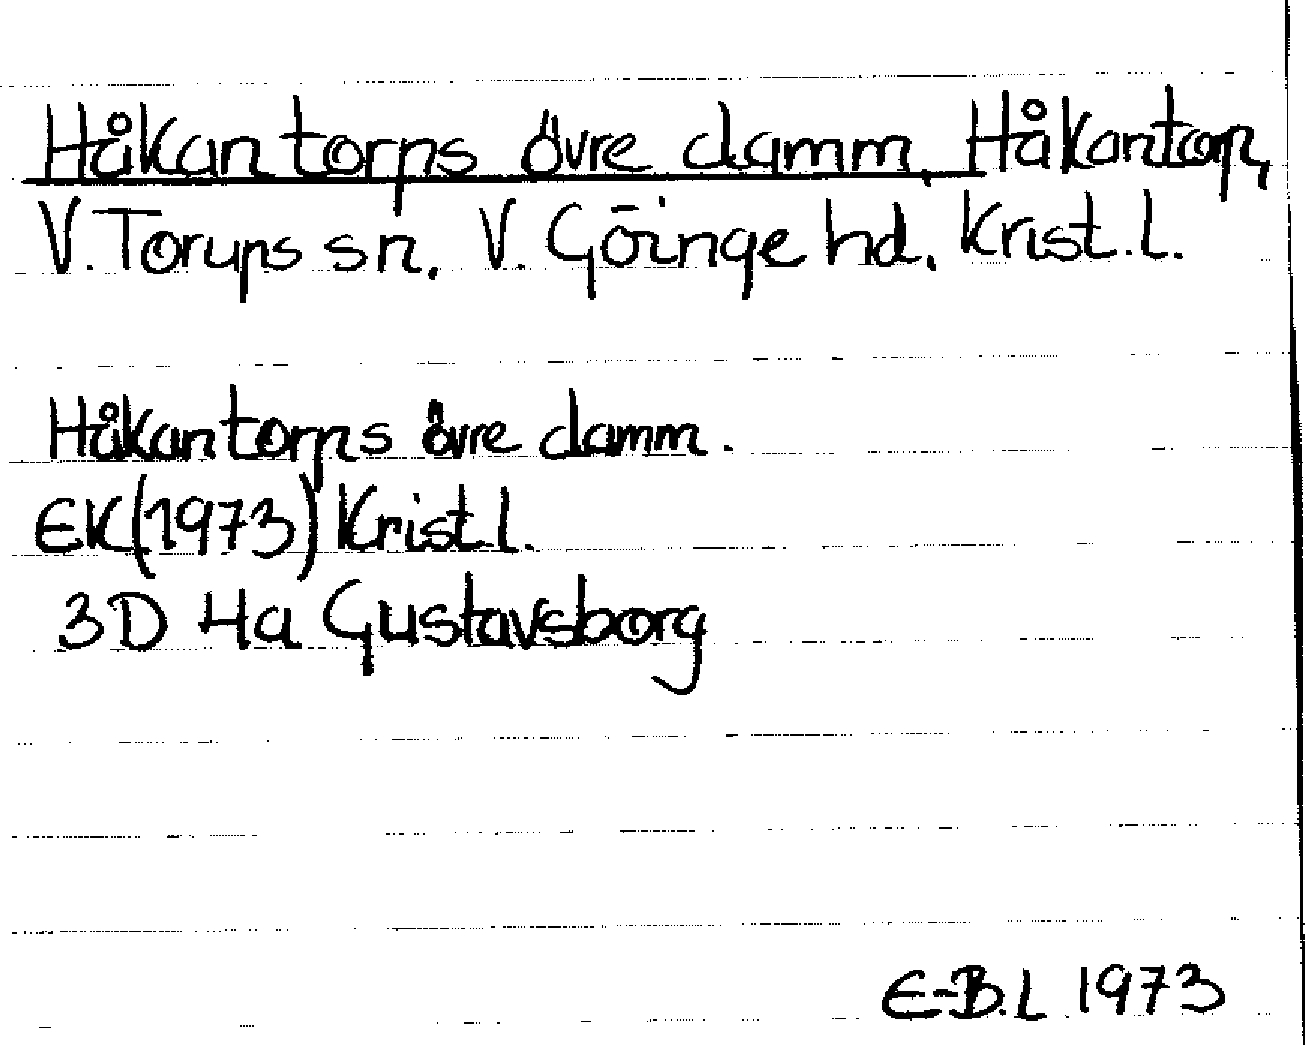 Håkantorps övre damm, Håkantorp,
V. Torups sn. V. Göinge hd. Krist.l.
Håkantorps övre damm.
EK(1973) Krist.l.
3D 4a Gustavsborg
E-B.L 1973